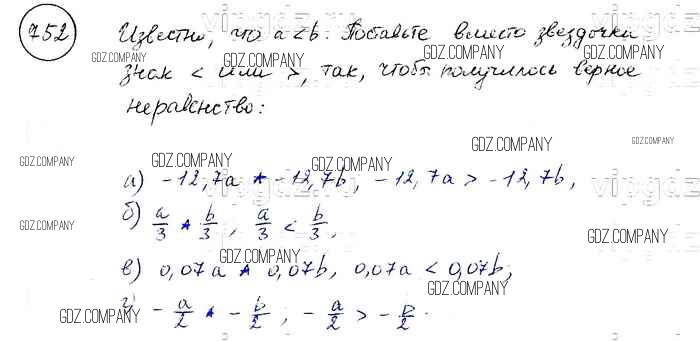 752
Известно, что a < b. Поставьте вместо звездочки
знак < или >, так, чтобы получилось верное
неравенство:
а) -12,7a * -12,7b, -12,7a > -12,7b,
б) a/3 * b/3, a/3 < b/3,
в) 0,07a * 0,07b, 0,07a < 0,07b,
г) -a/2 * -b/2, -a/2 > -b/2.
GDZ.COMPANY
GDZ.COMPANY
GDZ.COMPANY
GDZ.COMPANY
GDZ.COMPANY
GDZ.COMPANY
GDZ.COMPANY
GDZ.COMPANY
GDZ.COMPANY
GDZ.COMPANY
GDZ.COMPANY
GDZ.COMPANY
GDZ.COMPANY